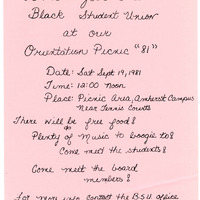 Black Student Union
at our
Orientation Picnic "81"
Date: Sat Sept 19, 1981
Time: 12:00 noon
Place: Picnic Area, Amherst Campus
Near Tennis Courts
There will be free food &
Plenty of Music to boogie to &
Come meet the students &
Come meet the board
members &
For more info contact the B.S.U. office